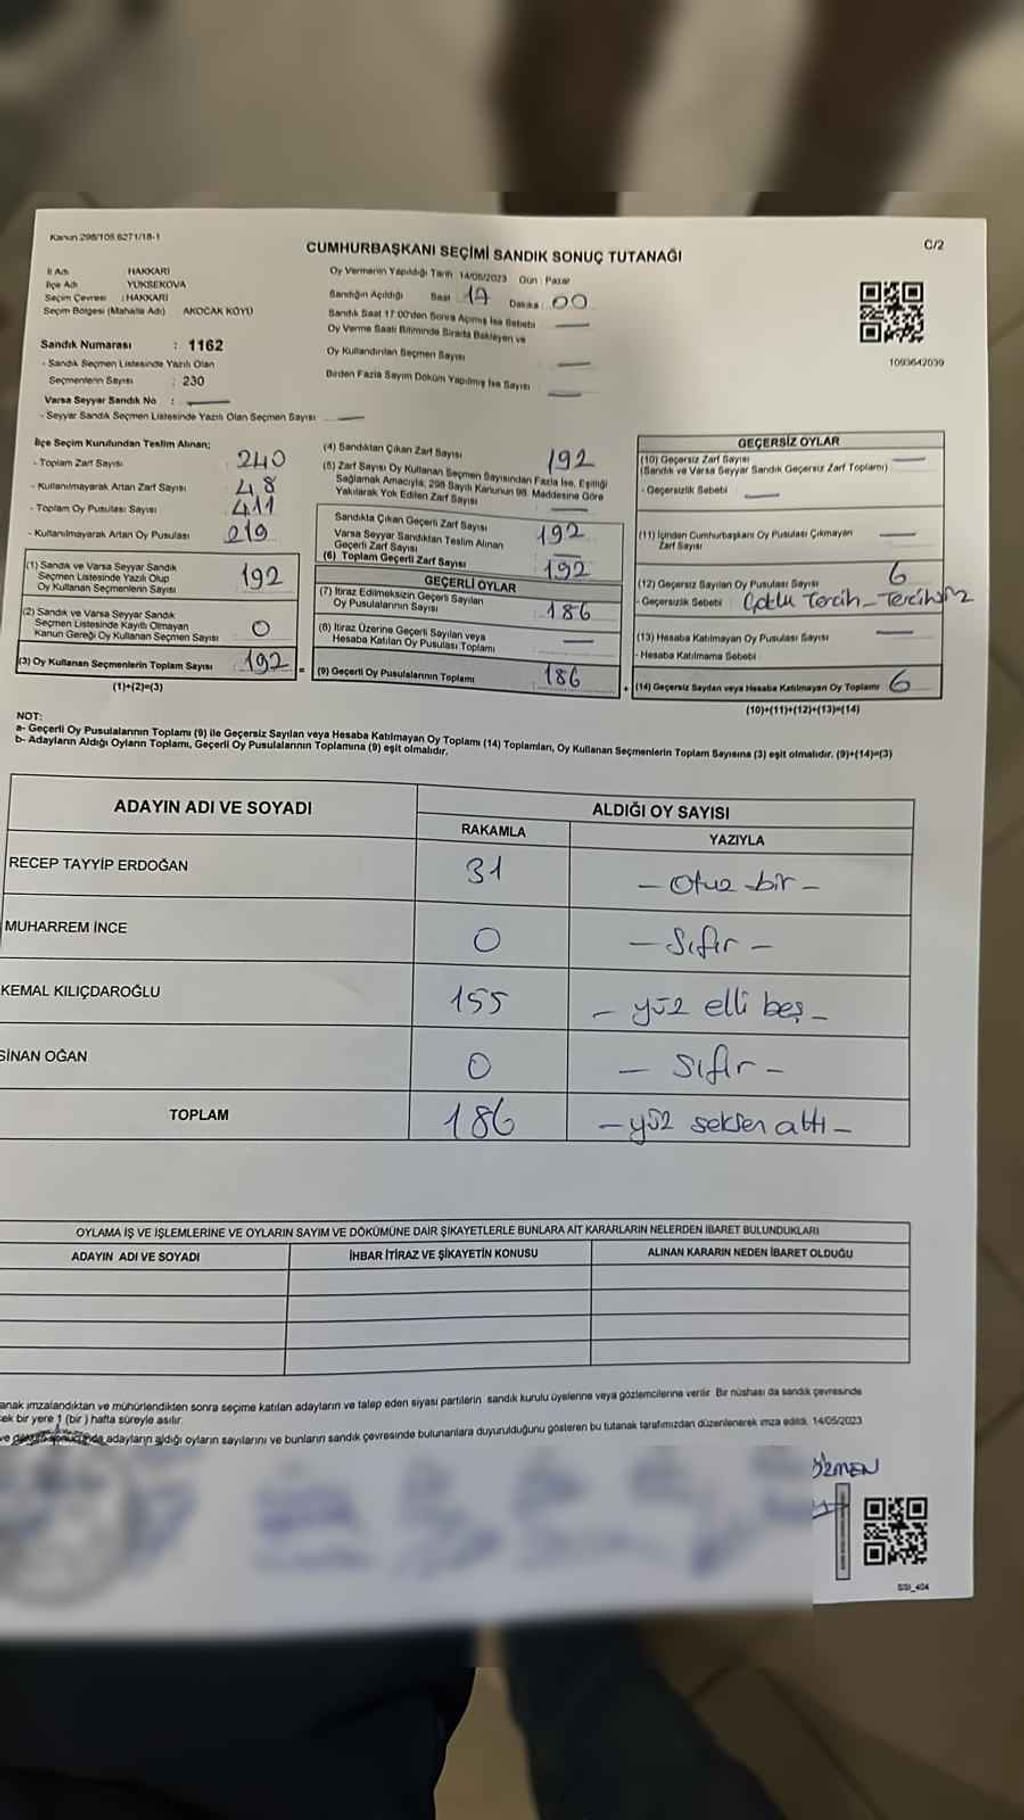 Kanun 298/105.6271/18-1
C/2
CUMHURBAŞKANI SEÇİMİ SANDIK SONUÇ TUTANAĞI
İl Adı HAKKARİ
İlçe Adı YÜKSEKOVA
Seçim Çevresi : HAKKARİ
Seçim Bölgesi (Mahalle Adı) AKOCAK KÖYÜ
Sandık Numarası : 1162
- Sandık Seçmen Listesinde Yazılı Olan
Seçmenlerin Sayısı : 230
Varsa Seyyar Sandık No :
- Seyyar Sandık Seçmen Listesinde Yazılı Olan Seçmen Sayısı
Oy Vermenin Yapıldığı Tarih 14/05/2023 Gün : Pazar
Sandığın Açıldığı Saat 17 Dakika : 00
Sandık Saat 17:00'den Sonra Açılmış İse Sebebi
Oy Verme Saati Bitiminde Sırada Bekleyen ve
Oy Kullandırılan Seçmen Sayısı
Birden Fazla Sayım Döküm Yapılmış İse Sayısı
1093642039
İlçe Seçim Kurulundan Teslim Alınan;
- Toplam Zarf Sayısı 240
- Kullanılmayarak Artan Zarf Sayısı 48
- Toplam Oy Pusulası Sayısı 411
- Kullanılmayarak Artan Oy Pusulası 219
(1) Sandık ve Varsa Seyyar Sandık
Seçmen Listesinde Yazılı Olup
Oy Kullanan Seçmenlerin Sayısı 192
(2) Sandık ve Varsa Seyyar Sandık
Seçmen Listesinde Kayıtlı Olmayan
Kanun Gereği Oy Kullanan Seçmen Sayısı 0
(3) Oy Kullanan Seçmenlerin Toplam Sayısı 192 =
(1)+(2)=(3)
(4) Sandıktan Çıkan Zarf Sayısı 192
(5) Zarf Sayısı Oy Kullanan Seçmen Sayısından Fazla İse, Eşitliği
Sağlamak Amacıyla, 298 Sayılı Kanunun 98. Maddesine Göre
Yakılarak Yok Edilen Zarf Sayısı
Sandıkta Çıkan Geçerli Zarf Sayısı 192
Varsa Seyyar Sandıktan Teslim Alınan
Geçerli Zarf Sayısı
(6) Toplam Geçerli Zarf Sayısı 192
GEÇERLİ OYLAR
(7) İtiraz Edilmeksizin Geçerli Sayılan
Oy Pusulalarının Sayısı 186
(8) İtiraz Üzerine Geçerli Sayılan veya
Hesaba Katılan Oy Pusulası Toplamı
(9) Geçerli Oy Pusulalarının Toplamı 186 +
GEÇERSİZ OYLAR
(10) Geçersiz Zarf Sayısı
(Sandık ve Varsa Seyyar Sandık Geçersiz Zarf Toplamı)
- Geçersizlik Sebebi
(11) İçinden Cumhurbaşkanı Oy Pusulası Çıkmayan
Zarf Sayısı
(12) Geçersiz Sayılan Oy Pusulası Sayısı 6
- Geçersizlik Sebebi Çoklu Tercih - Tercihsiz
(13) Hesaba Katılmayan Oy Pusulası Sayısı
- Hesaba Katılmama Sebebi
(14) Geçersiz Sayılan veya Hesaba Katılmayan Oy Toplamı 6
(10)+(11)+(12)+(13)=(14)
NOT:
a- Geçerli Oy Pusulalarının Toplamı (9) ile Geçersiz Sayılan veya Hesaba Katılmayan Oy Toplamı (14) Toplamları, Oy Kullanan Seçmenlerin Toplam Sayısına (3) eşit olmalıdır. (9)+(14)=(3)
b- Adayların Aldığı Oyların Toplamı, Geçerli Oy Pusulalarının Toplamına (9) eşit olmalıdır.
ADAYIN ADI VE SOYADI ALDIĞI OY SAYISI
RAKAMLA YAZIYLA
RECEP TAYYİP ERDOĞAN 31 - Otuz bir -
MUHARREM İNCE 0 - Sıfır -
KEMAL KILIÇDAROĞLU 155 - yüz elli beş -
SİNAN OĞAN 0 - Sıfır -
TOPLAM 186 - yüz seksen altı -
OYLAMA İŞ VE İŞLEMLERİNE VE OYLARIN SAYIM VE DÖKÜMÜNE DAİR ŞİKAYETLERLE BUNLARA AİT KARARLARIN NELERDEN İBARET BULUNDUKLARI
ADAYIN ADI VE SOYADI İHBAR İTİRAZ VE ŞİKAYETİN KONUSU ALINAN KARARIN NEDEN İBARET OLDUĞU
anak imzalandıktan ve mühürlendikten sonra seçime katılan adayların ve talep eden siyasi partilerin sandık kurulu üyelerine veya gözlemcilerine verilir. Bir nüshası da sandık çevresinde
ek bir yere 1 (bir) hafta süreyle asılır.
adayların aldığı oyların sayılarını ve bunların sandık çevresinde bulunanlara duyurulduğunu gösteren bu tutanak tarafımızdan düzenlenerek imza edildi. 14/05/2023
ÖZMEN
SSI_404